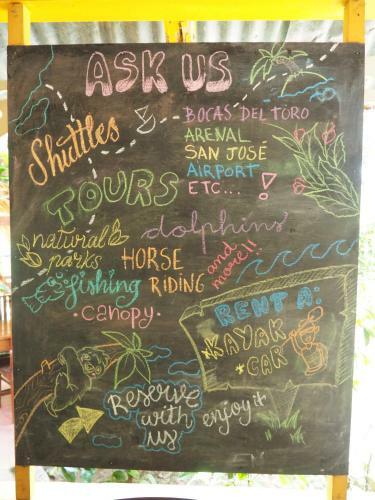 ASK US
Shuttles
BOCAS DEL TORO
ARENAL
SAN JOSÉ
AIRPORT
ETC... !
TOURS
dolphins
natural
parks
HORSE
RIDING
and
more!!
fishing
•canopy•
RENT A:
*KAYAK
*CAR
Reserve
with
us
enjoy it